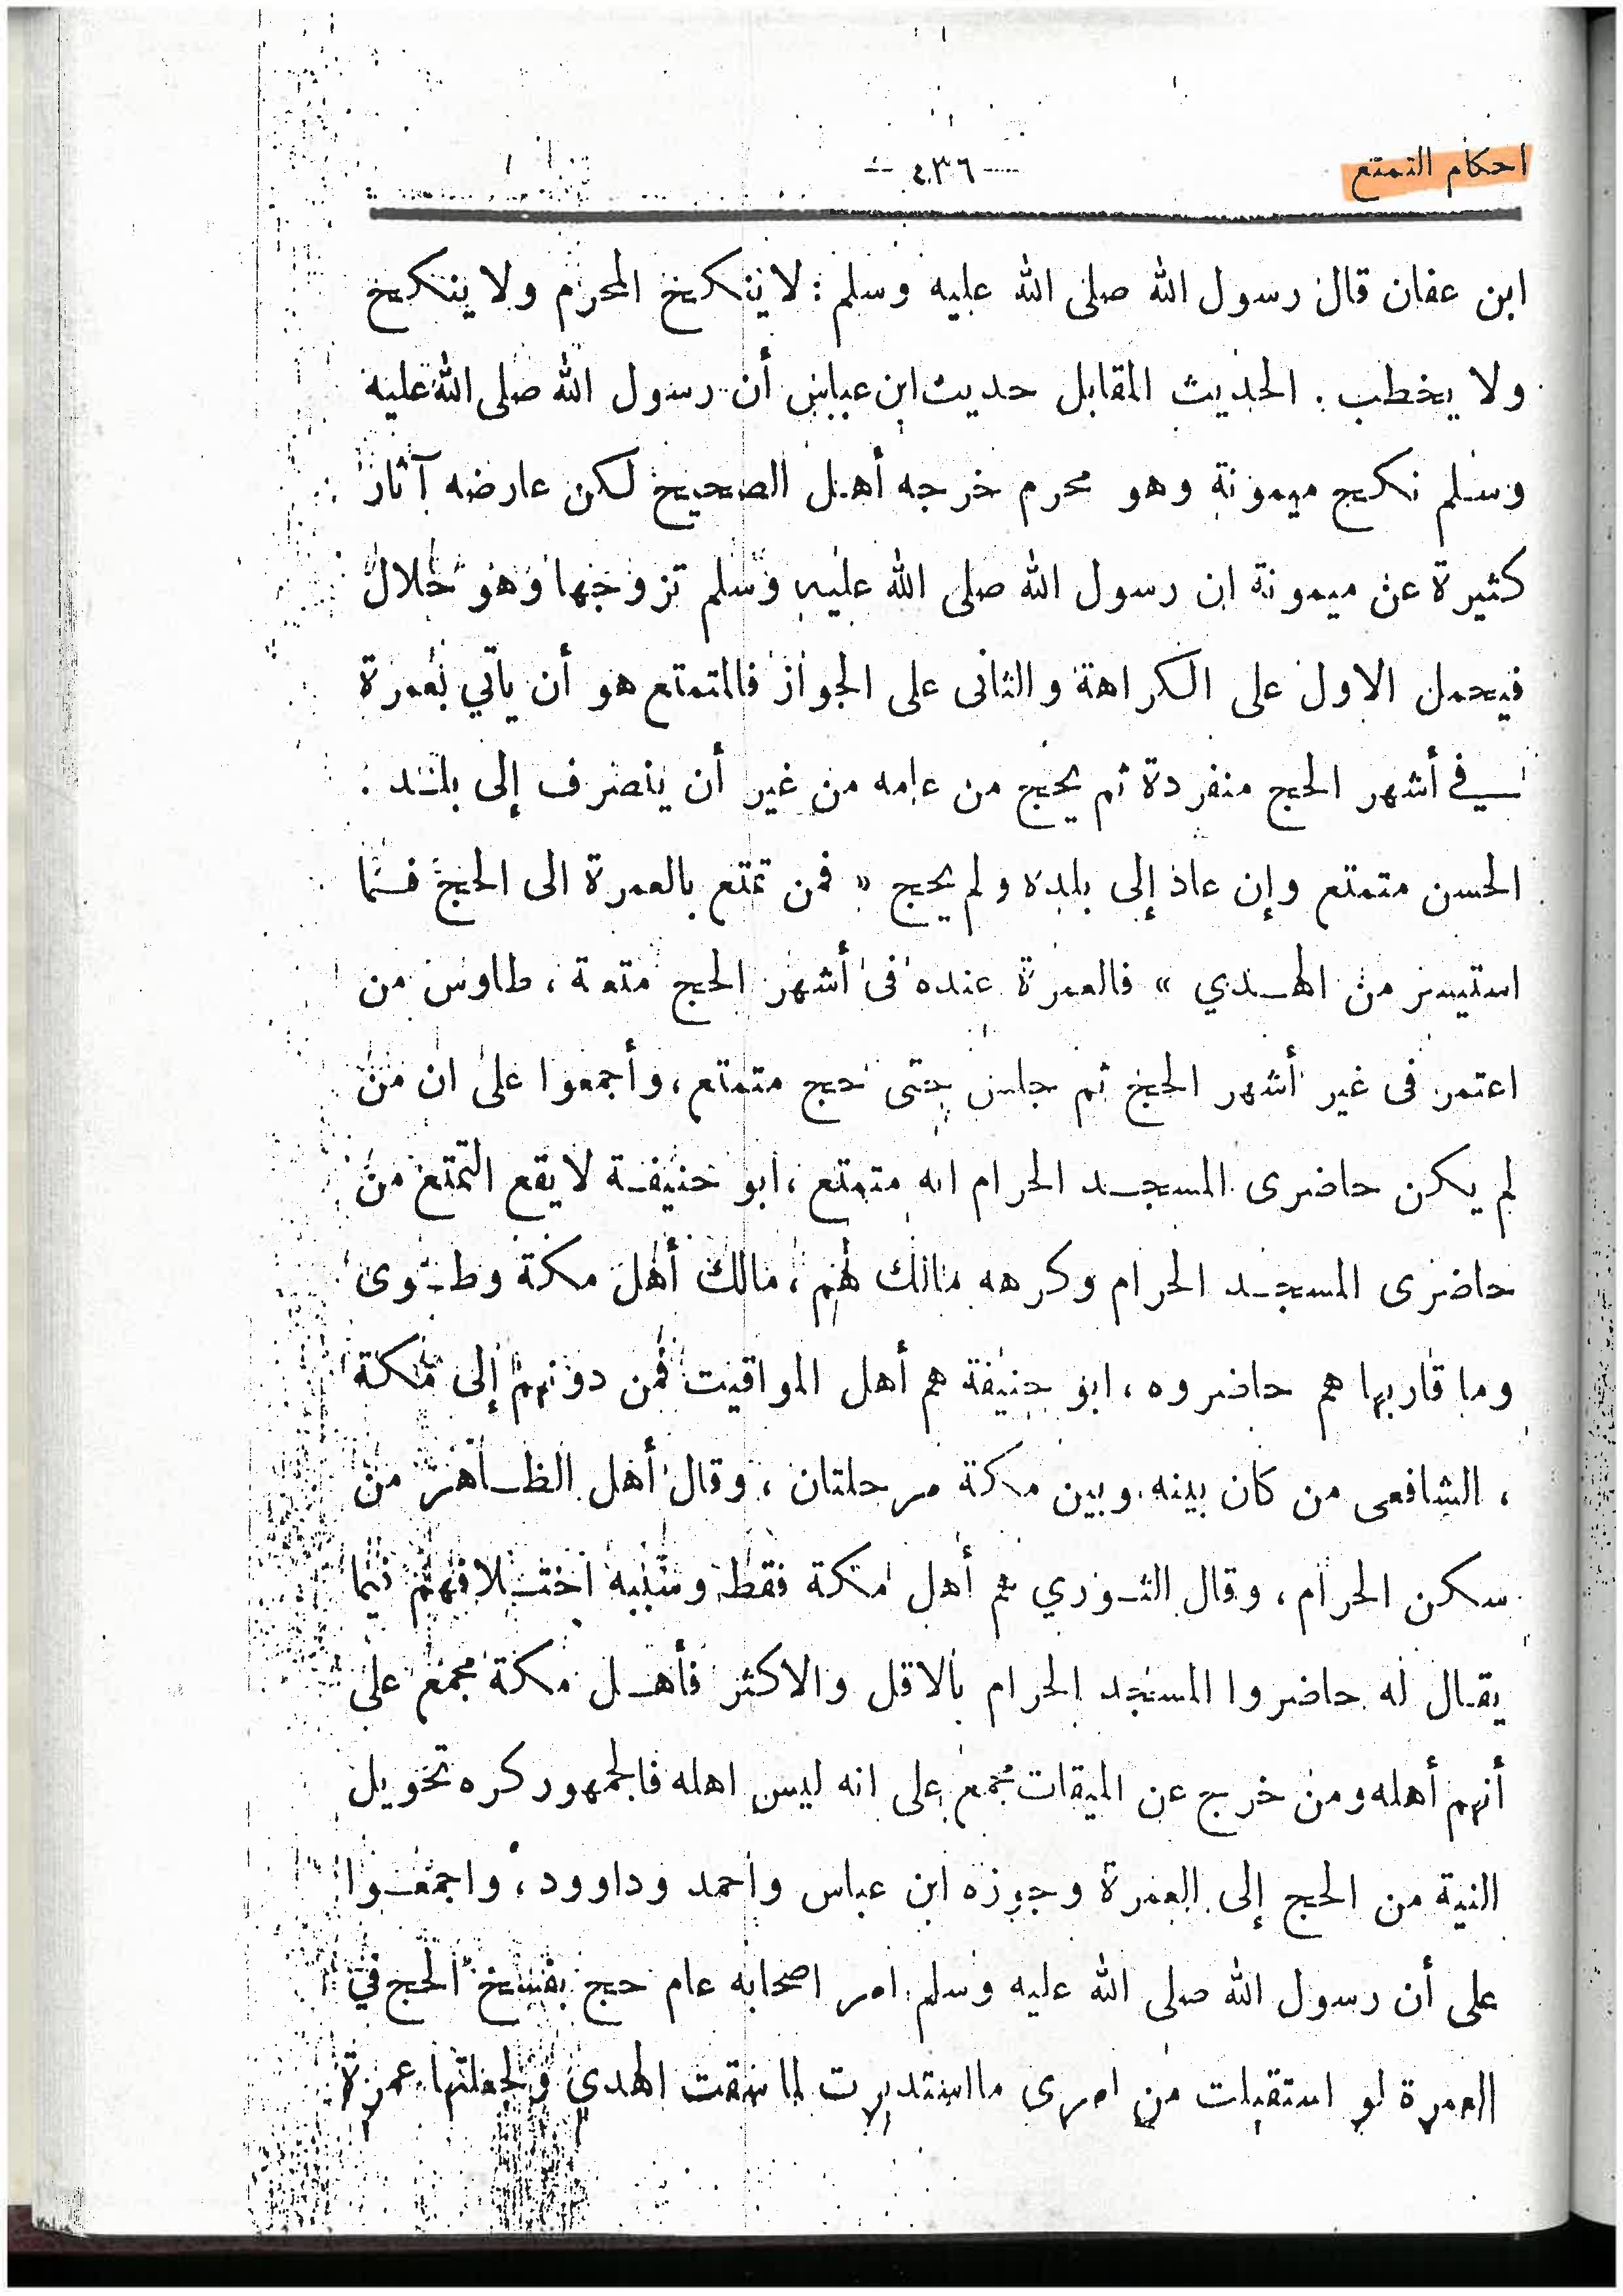 احكام التمتع
— ٤٣٦ —
ابن عفان قال رسول الله صلى الله عليه وسلم : لا ينكح المحرم ولا ينكح
ولا يخطب . الحديث المقابل حديث ابن عباس أن رسول الله صلى الله عليه
وسلم نكح ميمونة وهو محرم خرجه أهل الصحيح لكن عارضه آثار
كثيرة عن ميمونة ان رسول الله صلى الله عليه وسلم تزوجها وهو حلال
فيحمل الاول على الكراهة والثانى على الجواز فالمتمتع هو أن يأتي بعمرة
في أشهر الحج منفردة ثم يحج من عامه من غير أن ينصرف إلى بلد .
الحسن متمتع وإن عاد إلى بلده ولم يحج « فمن تمتع بالعمرة الى الحج فما
استيسر من الهدي » فالعمرة عنده فى أشهر الحج متعة ، طاوس من
اعتمر فى غير أشهر الحج ثم جلس حتى حج متمتع ، وأجمعوا على ان من
لم يكن حاضرى المسجد الحرام انه متمتع ، ابو حنيفة لا يقع التمتع من
حاضرى المسجد الحرام وكرهه مالك لهم ، مالك أهل مكة وطوى
وما قاربها هم حاضروه ، ابو حنيفة هم أهل المواقيت فمن دونهم إلى مكة
، الشافعى من كان بينه وبين مكة مرحلتان ، وقال أهل الظاهر من
سكن الحرام ، وقال الثوري هم أهل مكة فقط وسببه اختلافهم فيما
يقال له حاضروا المسجد الحرام بالاقل والاكثر فأهل مكة مجمع على
أنهم أهله ومن خرج عن الميقات مجمع على انه ليس اهله فالجمهور كره تحويل
النية من الحج إلى العمرة وجوزه ابن عباس وأحمد وداوود ، واجمعوا
على أن رسول الله صلى الله عليه وسلم امر اصحابه عام حج بفسخ الحج في
العمرة لو استقبلت من امرى ما استدبرت لما سقت الهدى ولجعلتها عمرة